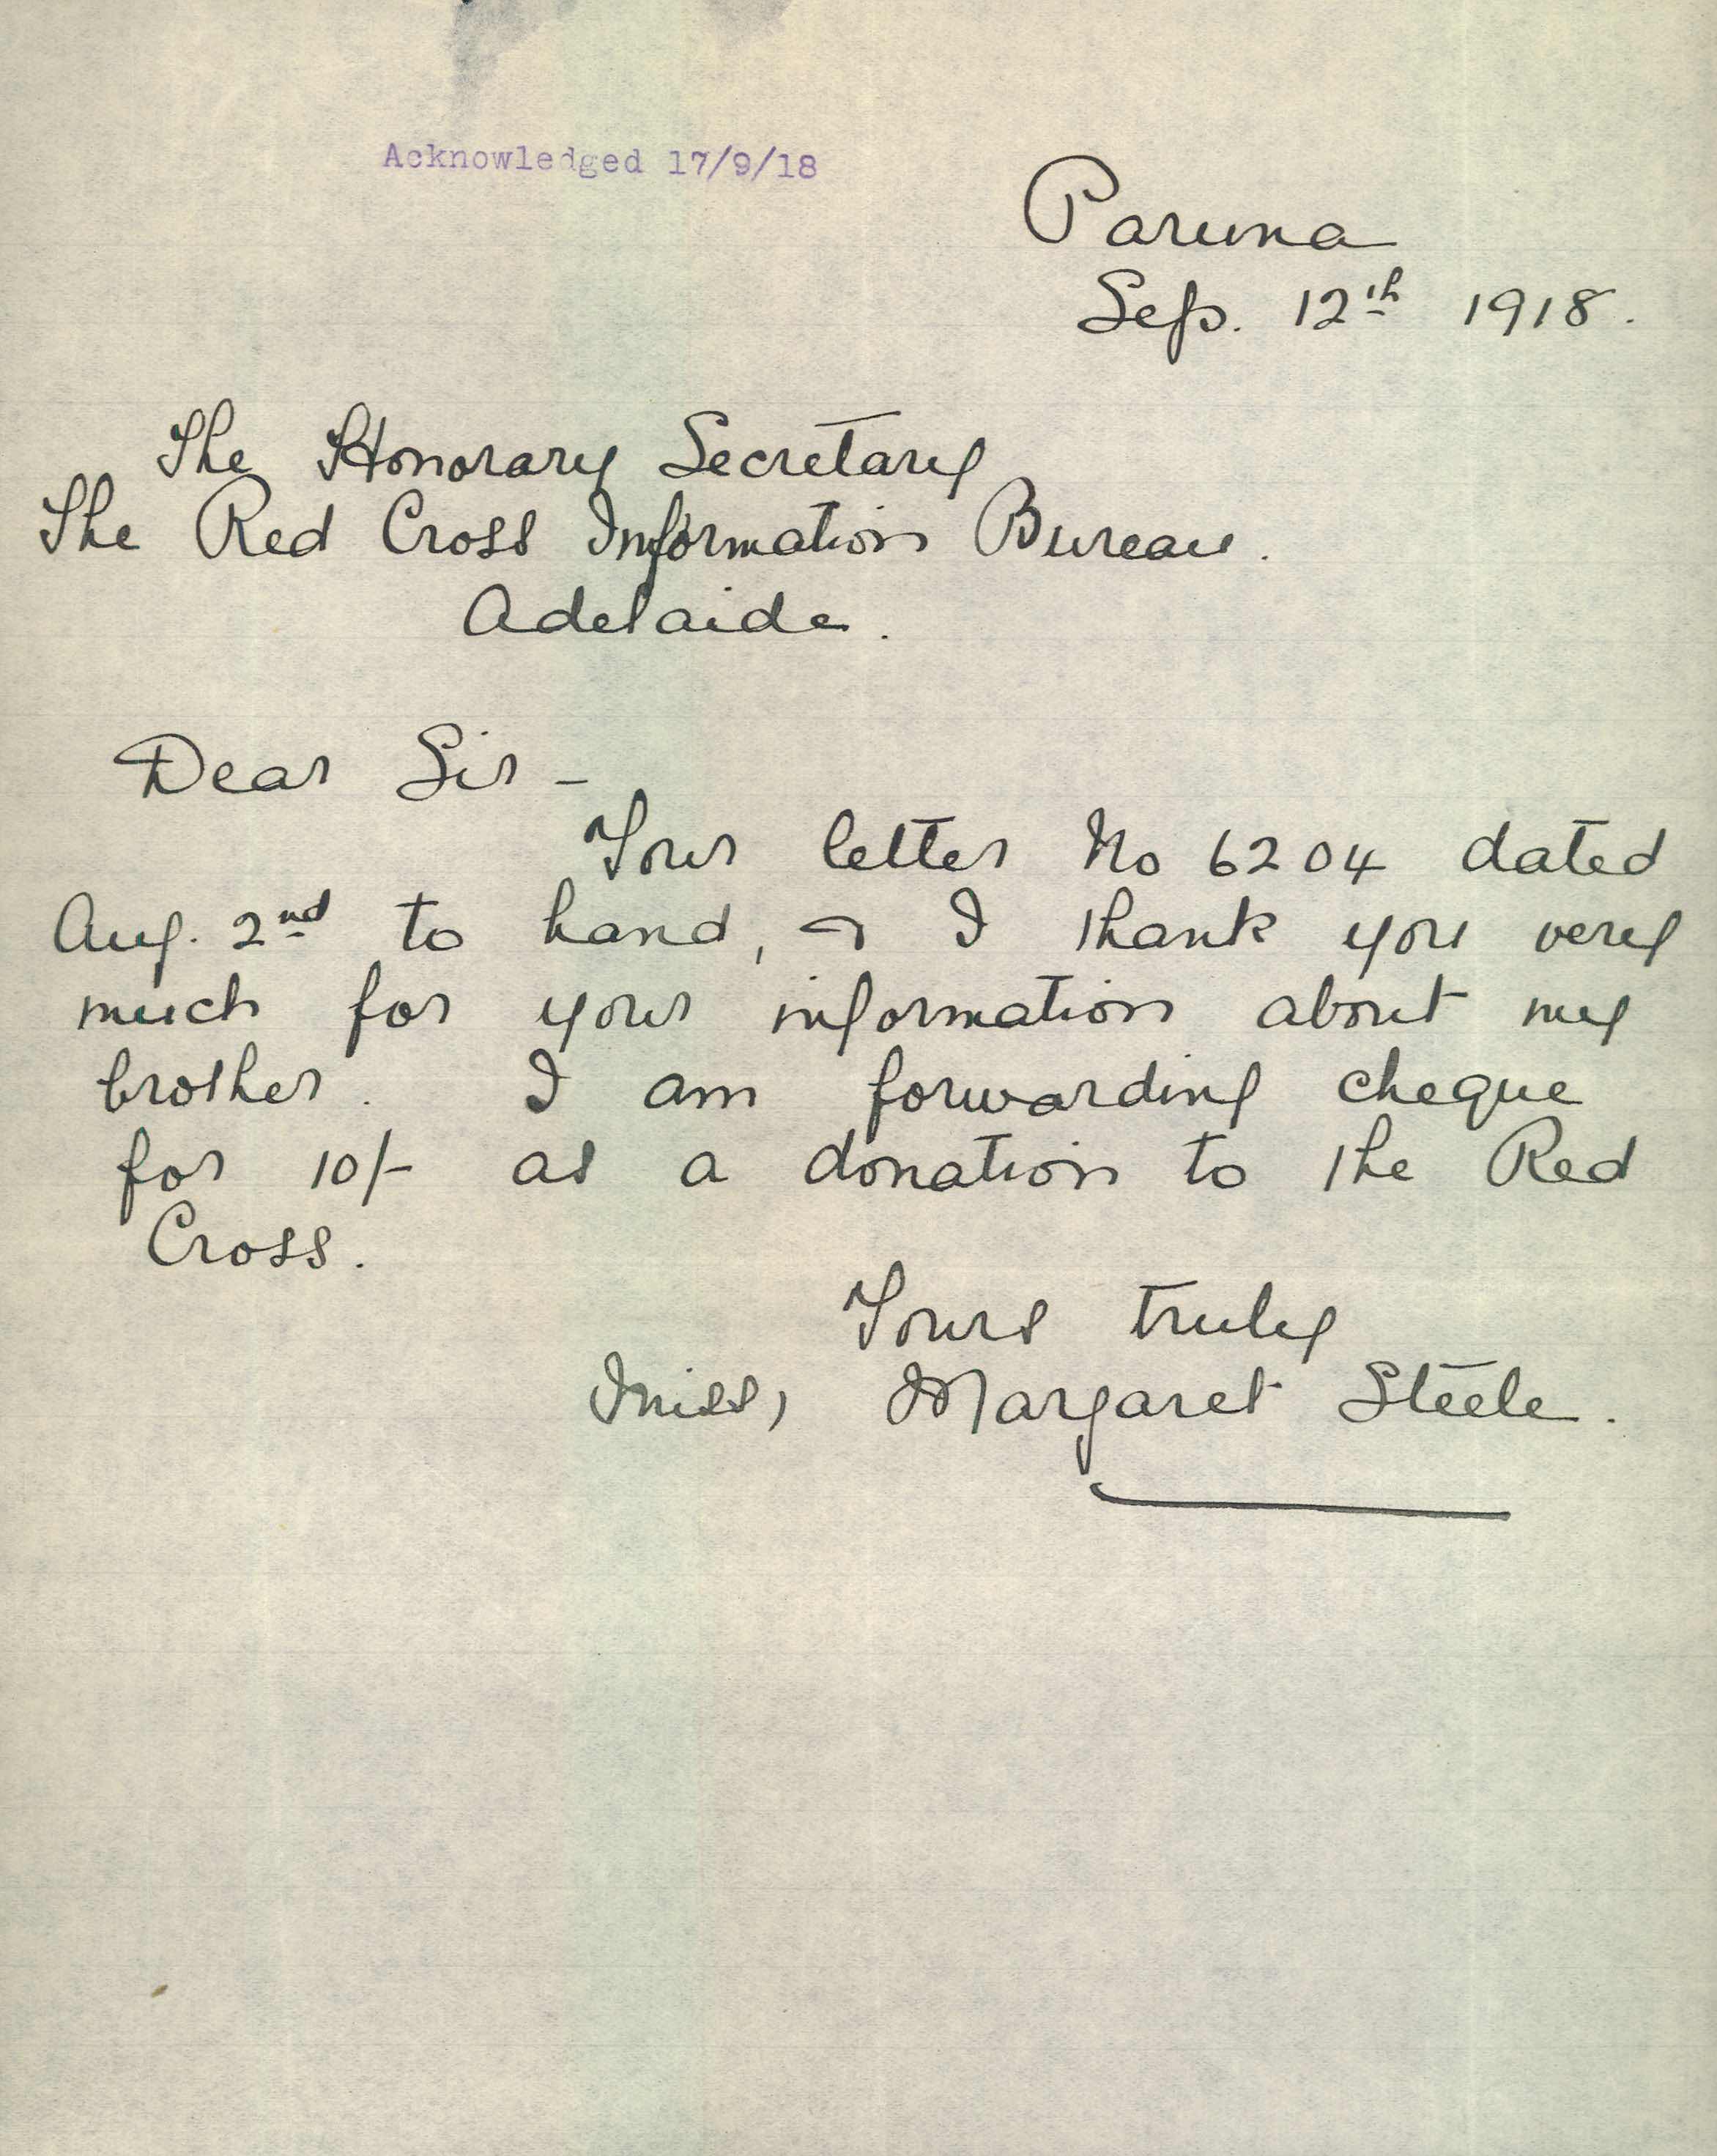 Acknowledged 17/9/18
Paruna
Sep. 12th 1918.
The Honorary Secretary
The Red Cross Information Bureau.
Adelaide.
Dear Sir -
Your letter No 6204 dated
Aug. 2nd to hand, & I thank you very
much for your information about my
brother. I am forwarding cheque
for 10/- as a donation to the Red
Cross.
Yours truly
Miss, Margaret Steele.